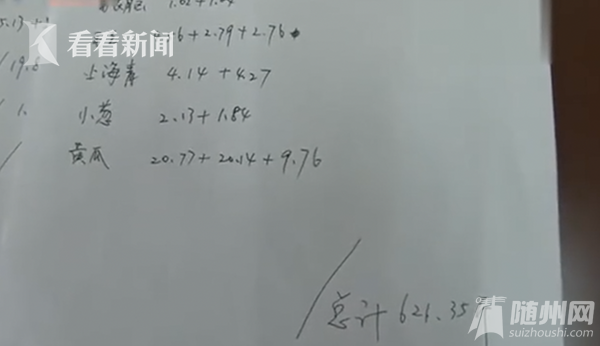 看看新闻
+2.79+2.76
上海青 4.14+4.27
小葱 2.13+1.84
黄瓜 20.77+20.14+9.76
总计 621.35
随州网
suizhoushi.com